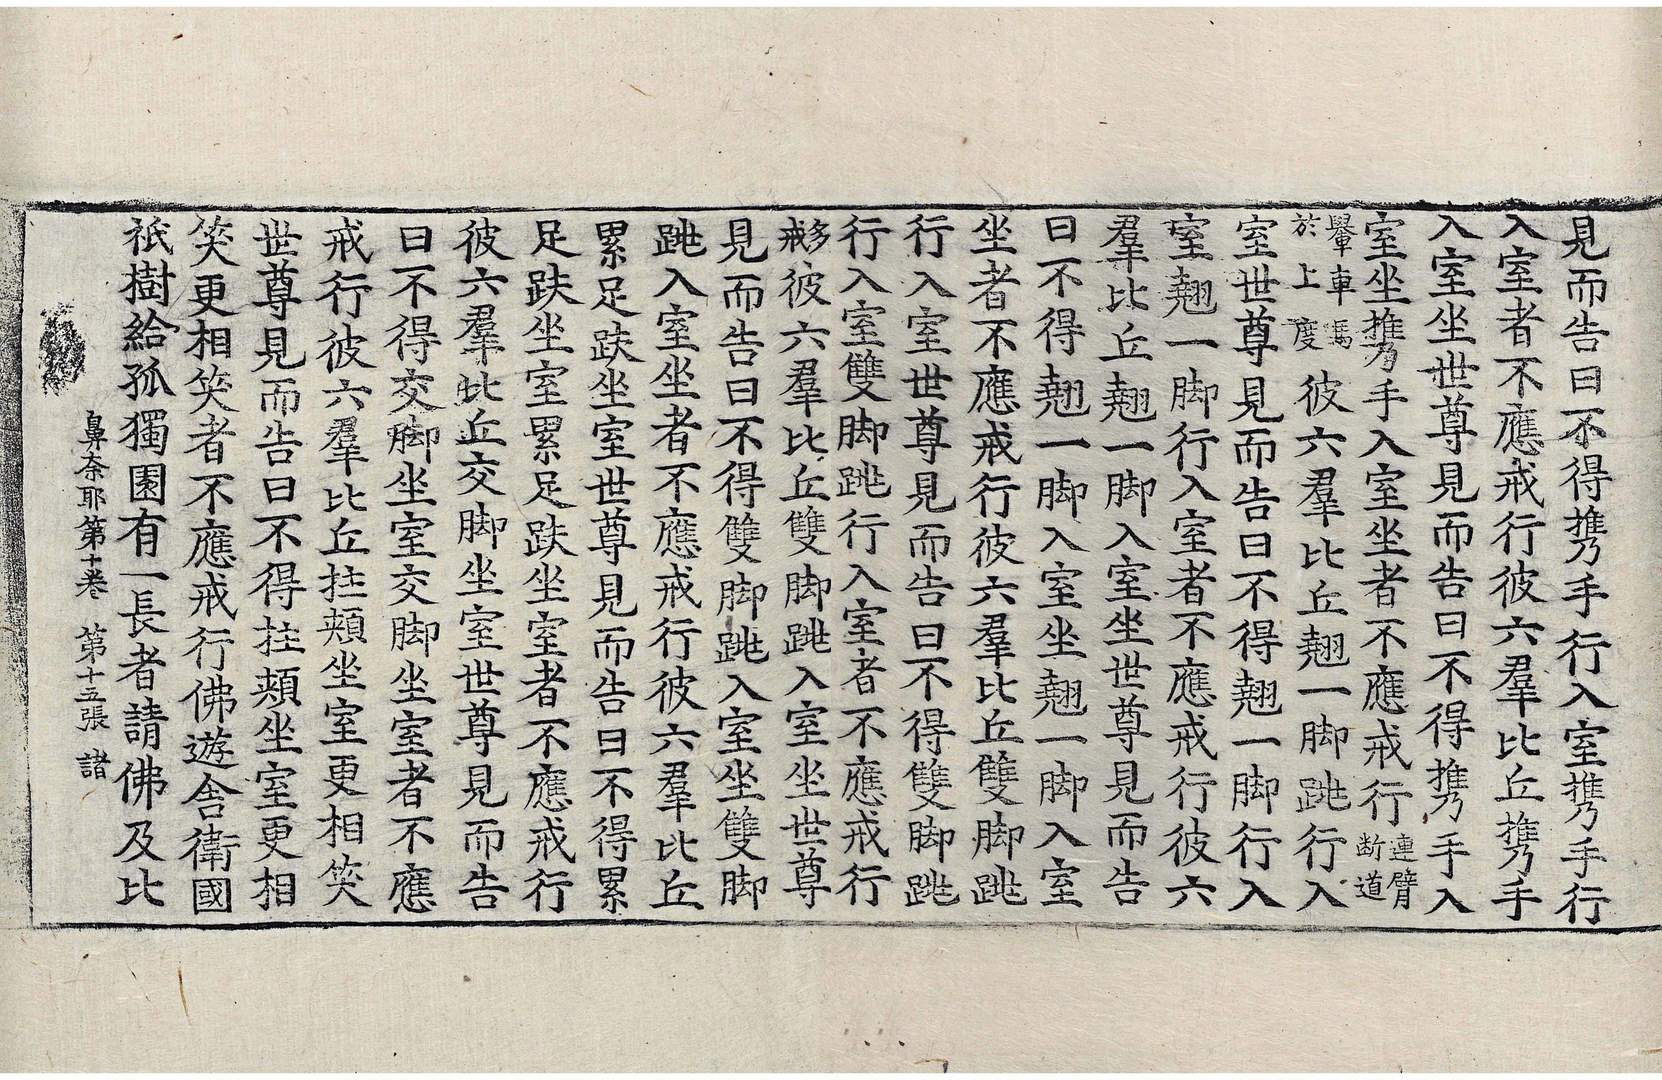 見而告曰不得携手行入室携手行
入室者不應戒行彼六羣比丘携手
入室坐世尊見而告曰不得携手入
室坐携手入室坐者不應戒行連臂断道
轝車馬於上度彼六羣比丘翹一脚跳行入
室世尊見而告曰不得翹一脚行入
室翹一脚行入室者不應戒行彼六
羣比丘翹一脚入室坐世尊見而告
曰不得翹一脚入室坐翹一脚入室
坐者不應戒行彼六羣比丘雙脚跳
行入室世尊見而告曰不得雙脚跳
行入室雙脚跳行入室者不應戒行
多戒彼六羣比丘雙脚跳入室坐世尊
見而告曰不得雙脚跳入室坐雙脚
跳入室坐者不應戒行彼六羣比丘
累足趺坐室世尊見而告曰不得累
足趺坐室累足趺坐室者不應戒行
彼六羣比丘交脚坐室世尊見而告
曰不得交脚坐室交脚坐室者不應
戒行彼六羣比丘拄頰坐室更相笑
世尊見而告曰不得拄頰坐室更相
笑更相笑者不應戒行佛遊舍衛國
祇樹給孤獨園有一長者請佛及比
鼻奈耶第十卷 第十五張 諸